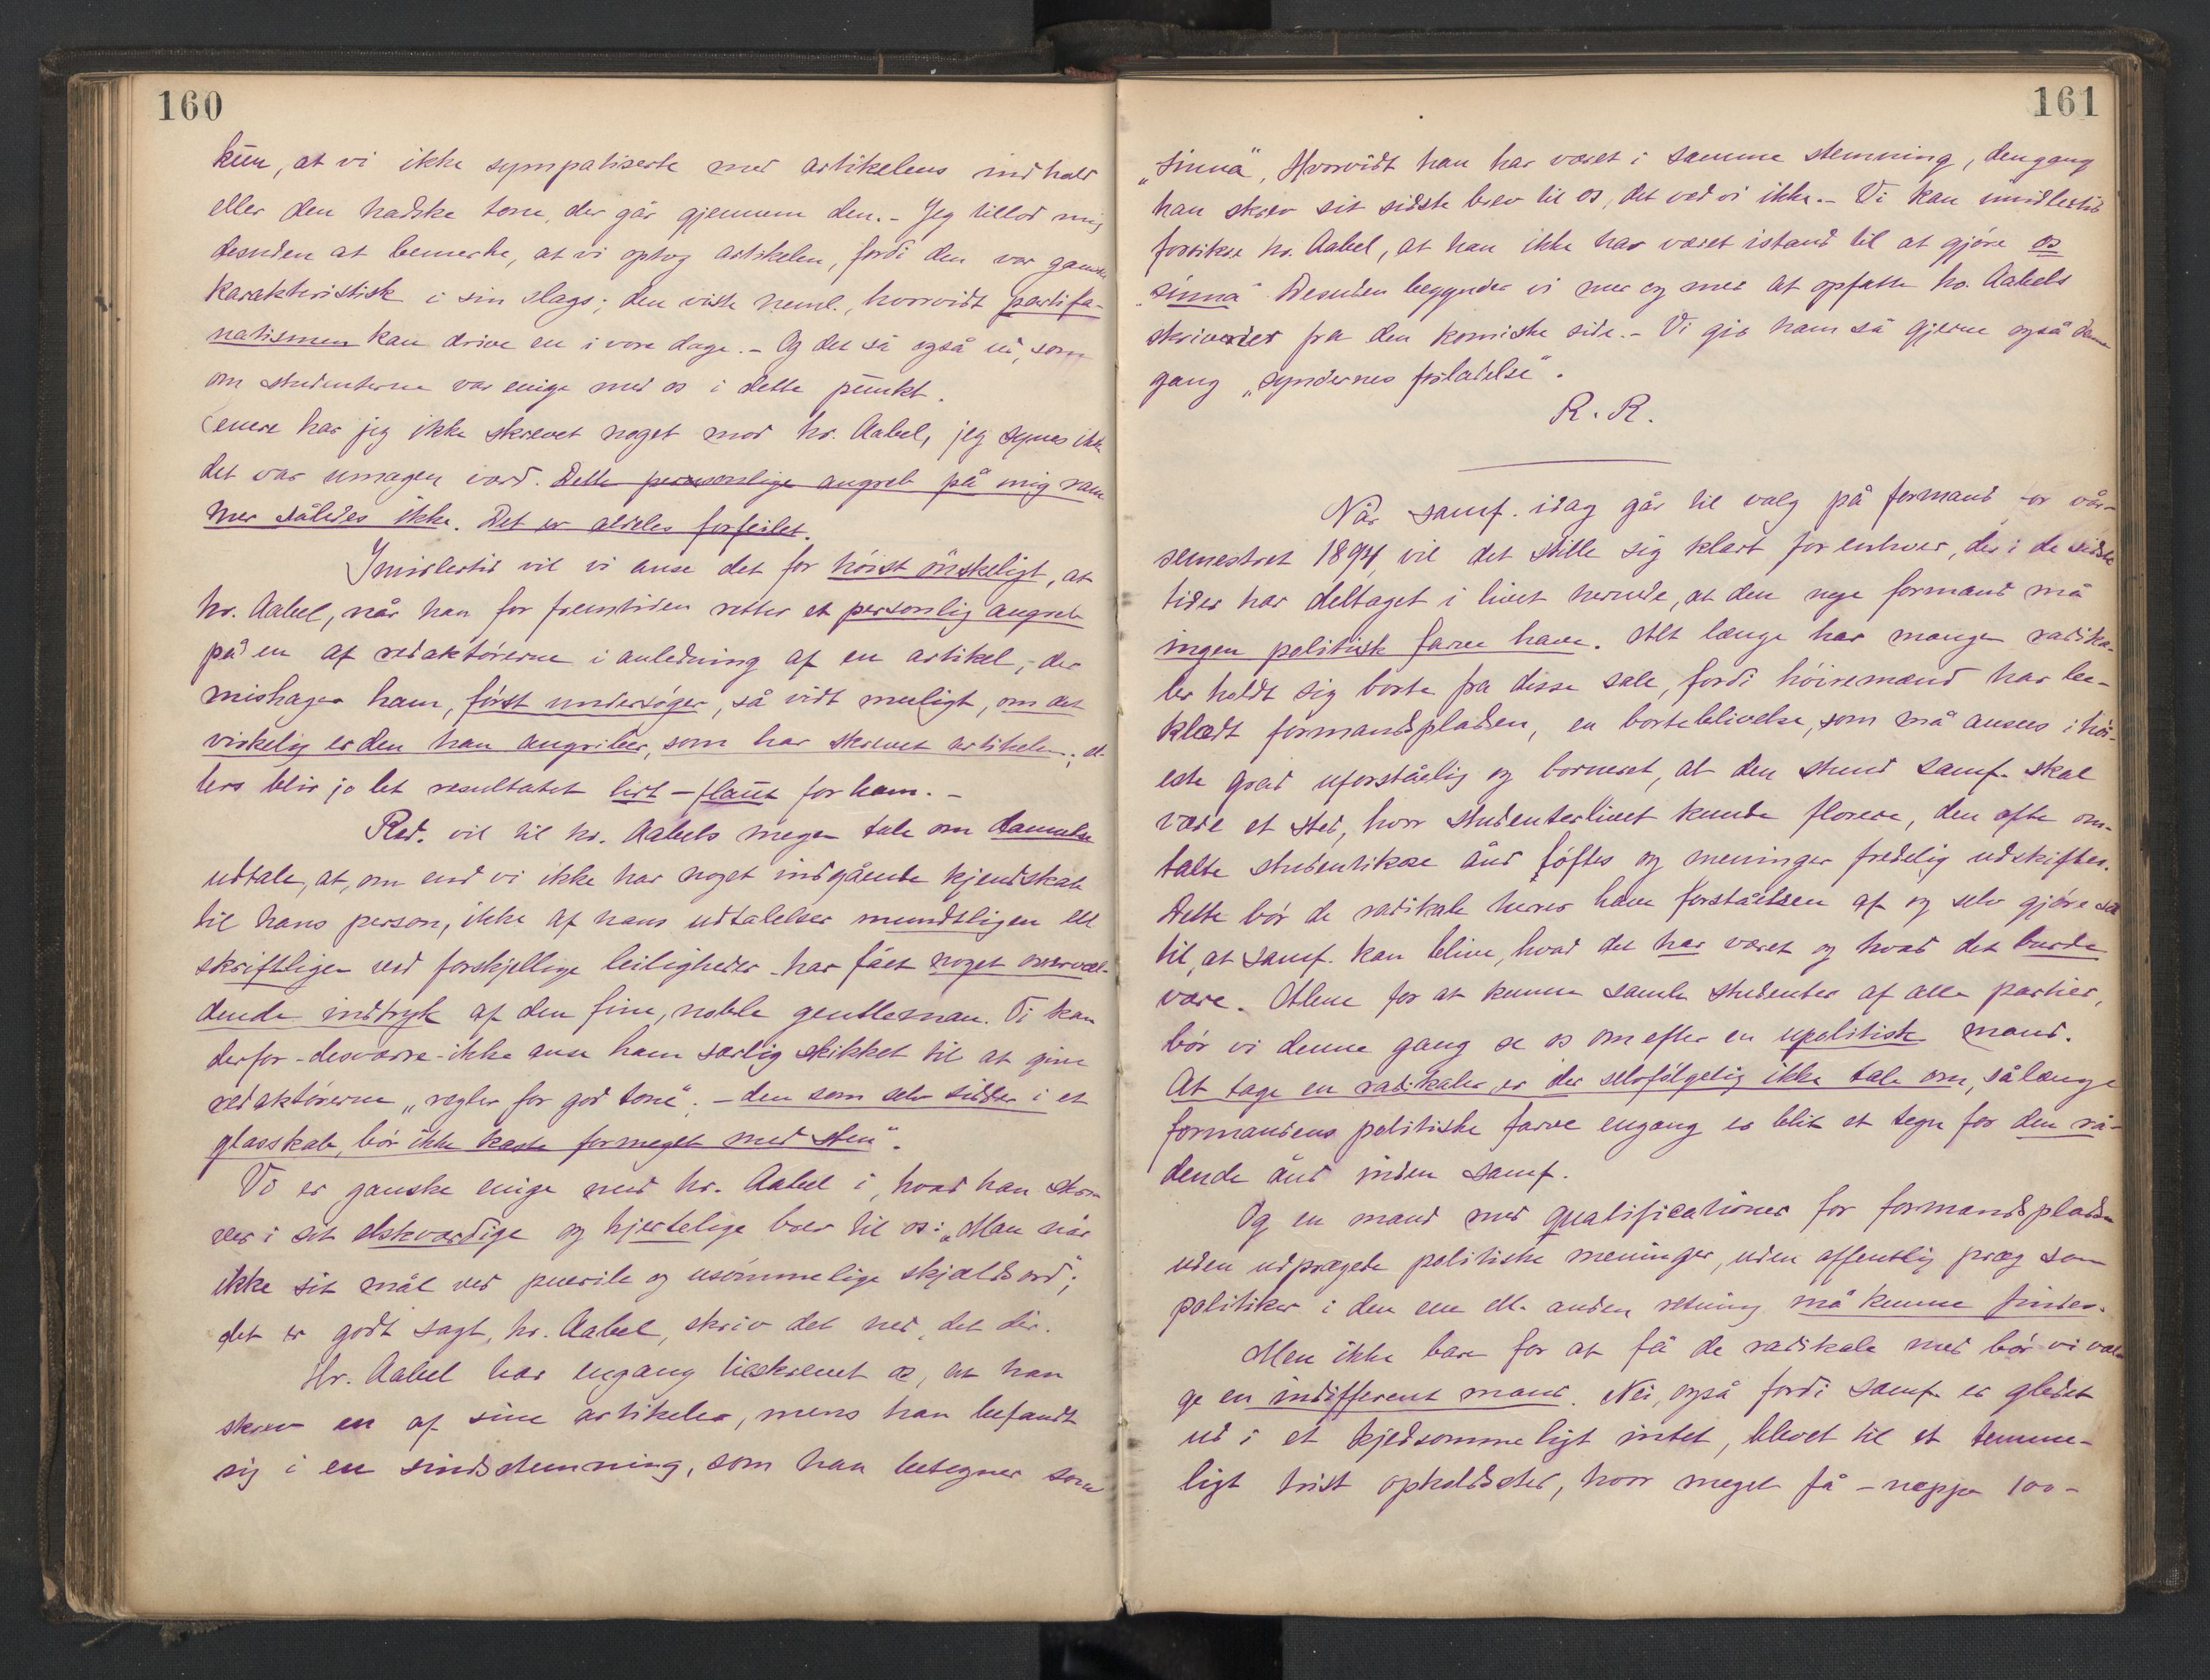 160
kun, at vi ikke sympatiserte med artikelens indhold
eller den hadske tone, der går gjennem den. - Jeg tillod mig
desuden at bemerke, at vi optog artikelen, fordi den var ganske
karakteristisk i sin slags; den viste neml., hvorvidt partifa-
natismen kan drive en i vore dage. - Og det så også ud, som
om studenterne var enige med os i dette punkt.
Senere har jeg ikke skrevet noget mod hr. Aabel, jeg synes ikke
det var umagen værd. Dette personlige angreb på mig ram-
mer således ikke. Det er aldeles forfeilet.
Imidlertid vil vi anse det for høist ønskeligt, at
hr. Aabel, når han for fremtiden retter et personlig angreb
på en af redaktørerne i anledning af en artikel, der
mishager ham, først undersøger, så vidt muligt, om det
virkelig er den han angriber, som har skrevet artikelen; el-
lers blir jo let resultatet lidt - flaut for ham. -
Red. vil til hr. Aabels megen tale om dannelse
udtale, at, om end vi ikke har noget indgående kjendskab
til hans person, ikke af hans udtalelser mundtligen ell
skriftligen ved forskjellige leiligheder har fået noget overvæl-
dende indtryk af den fine, noble gentleman. Vi kan
derfor - desværre - ikke anse ham særlig skikket til at give
redaktørerne „regler for god tone“. - den som selv sidder i et
glasskab, bør ikke kaste formeget med sten“.
Vi er ganske enige med hr. Aabel i, hvad han skri-
ver i sit elskværdige og hjertelige brev til os: „Man når
ikke sit mål ved puerile og usømmelige skjældsord“;
det er godt sagt, hr. Aabel, skriv det ned, det der.
Hr. Aabel har engang tilskrevet os, at han
skrev en af sine artikeler, mens han befandt
sig i en sindsstemning, som han betegner som
161
„sinna“, Hvorvidt han har været i samme stemning, dengang
han skrev sit sidste brev til os, det ved vi ikke. - Vi kan imidlertid
forsikre hr. Aabel, at han ikke har været istand til at gjøre os
„sinna“ Desuden begynder vi mer og mer at opfatte hr. Aabels
skriverier fra den komiske side. - Vi gir ham så gjerne også denne
gang „syndernes forladelse“.
R. R.
Når samf. idag går til valg på formand for vår-
semestret 1894, vil det stille sig klart for enhver, der i de sidste
tider har deltaget i livet hernede, at den nye formand må
ingen politisk farve have. Alt længe har mange radika-
ler holdt sig borte fra disse sale, fordi høiremænd har be-
klædt formandspladsen, en borteblivelse, som må ansees i høi-
este grad uforståelig og borneret, al den stund samf. skal
være et sted, hvor studenterlivet kunde florere, den ofte om-
talte studentikose ånd løftes og meninger fredelig udskiftes.
Dette bør de radikale herrer have forståelsen af og selv gjøre sit
til, at samf. kan blive, hvad det har været og hvad det burde
være. Alene for at kunne samle studenter af alle partier,
bør vi denne gang se os om efter en upolitisk mand.
At tage en radikaler er der selvfølgelig ikke tale om, sålænge
formandens politiske farve engang er blit et tegn for den rå-
dende ånd inden samf.
Og en mand med qualificationer for formandspladsen
uden udprægede politiske meninger, uden offentlig præg som
politiker i den ene ell. anden retning må kunne findes.
Men ikke bare for at få de radikale med bør vi væl-
ge en indifferent mand. Nei, også fordi samf. er gledet
ud i et kjedsommeligt intet, blevet til et temme-
ligt trist opholdssted, hvor meget få - neppe 100 -